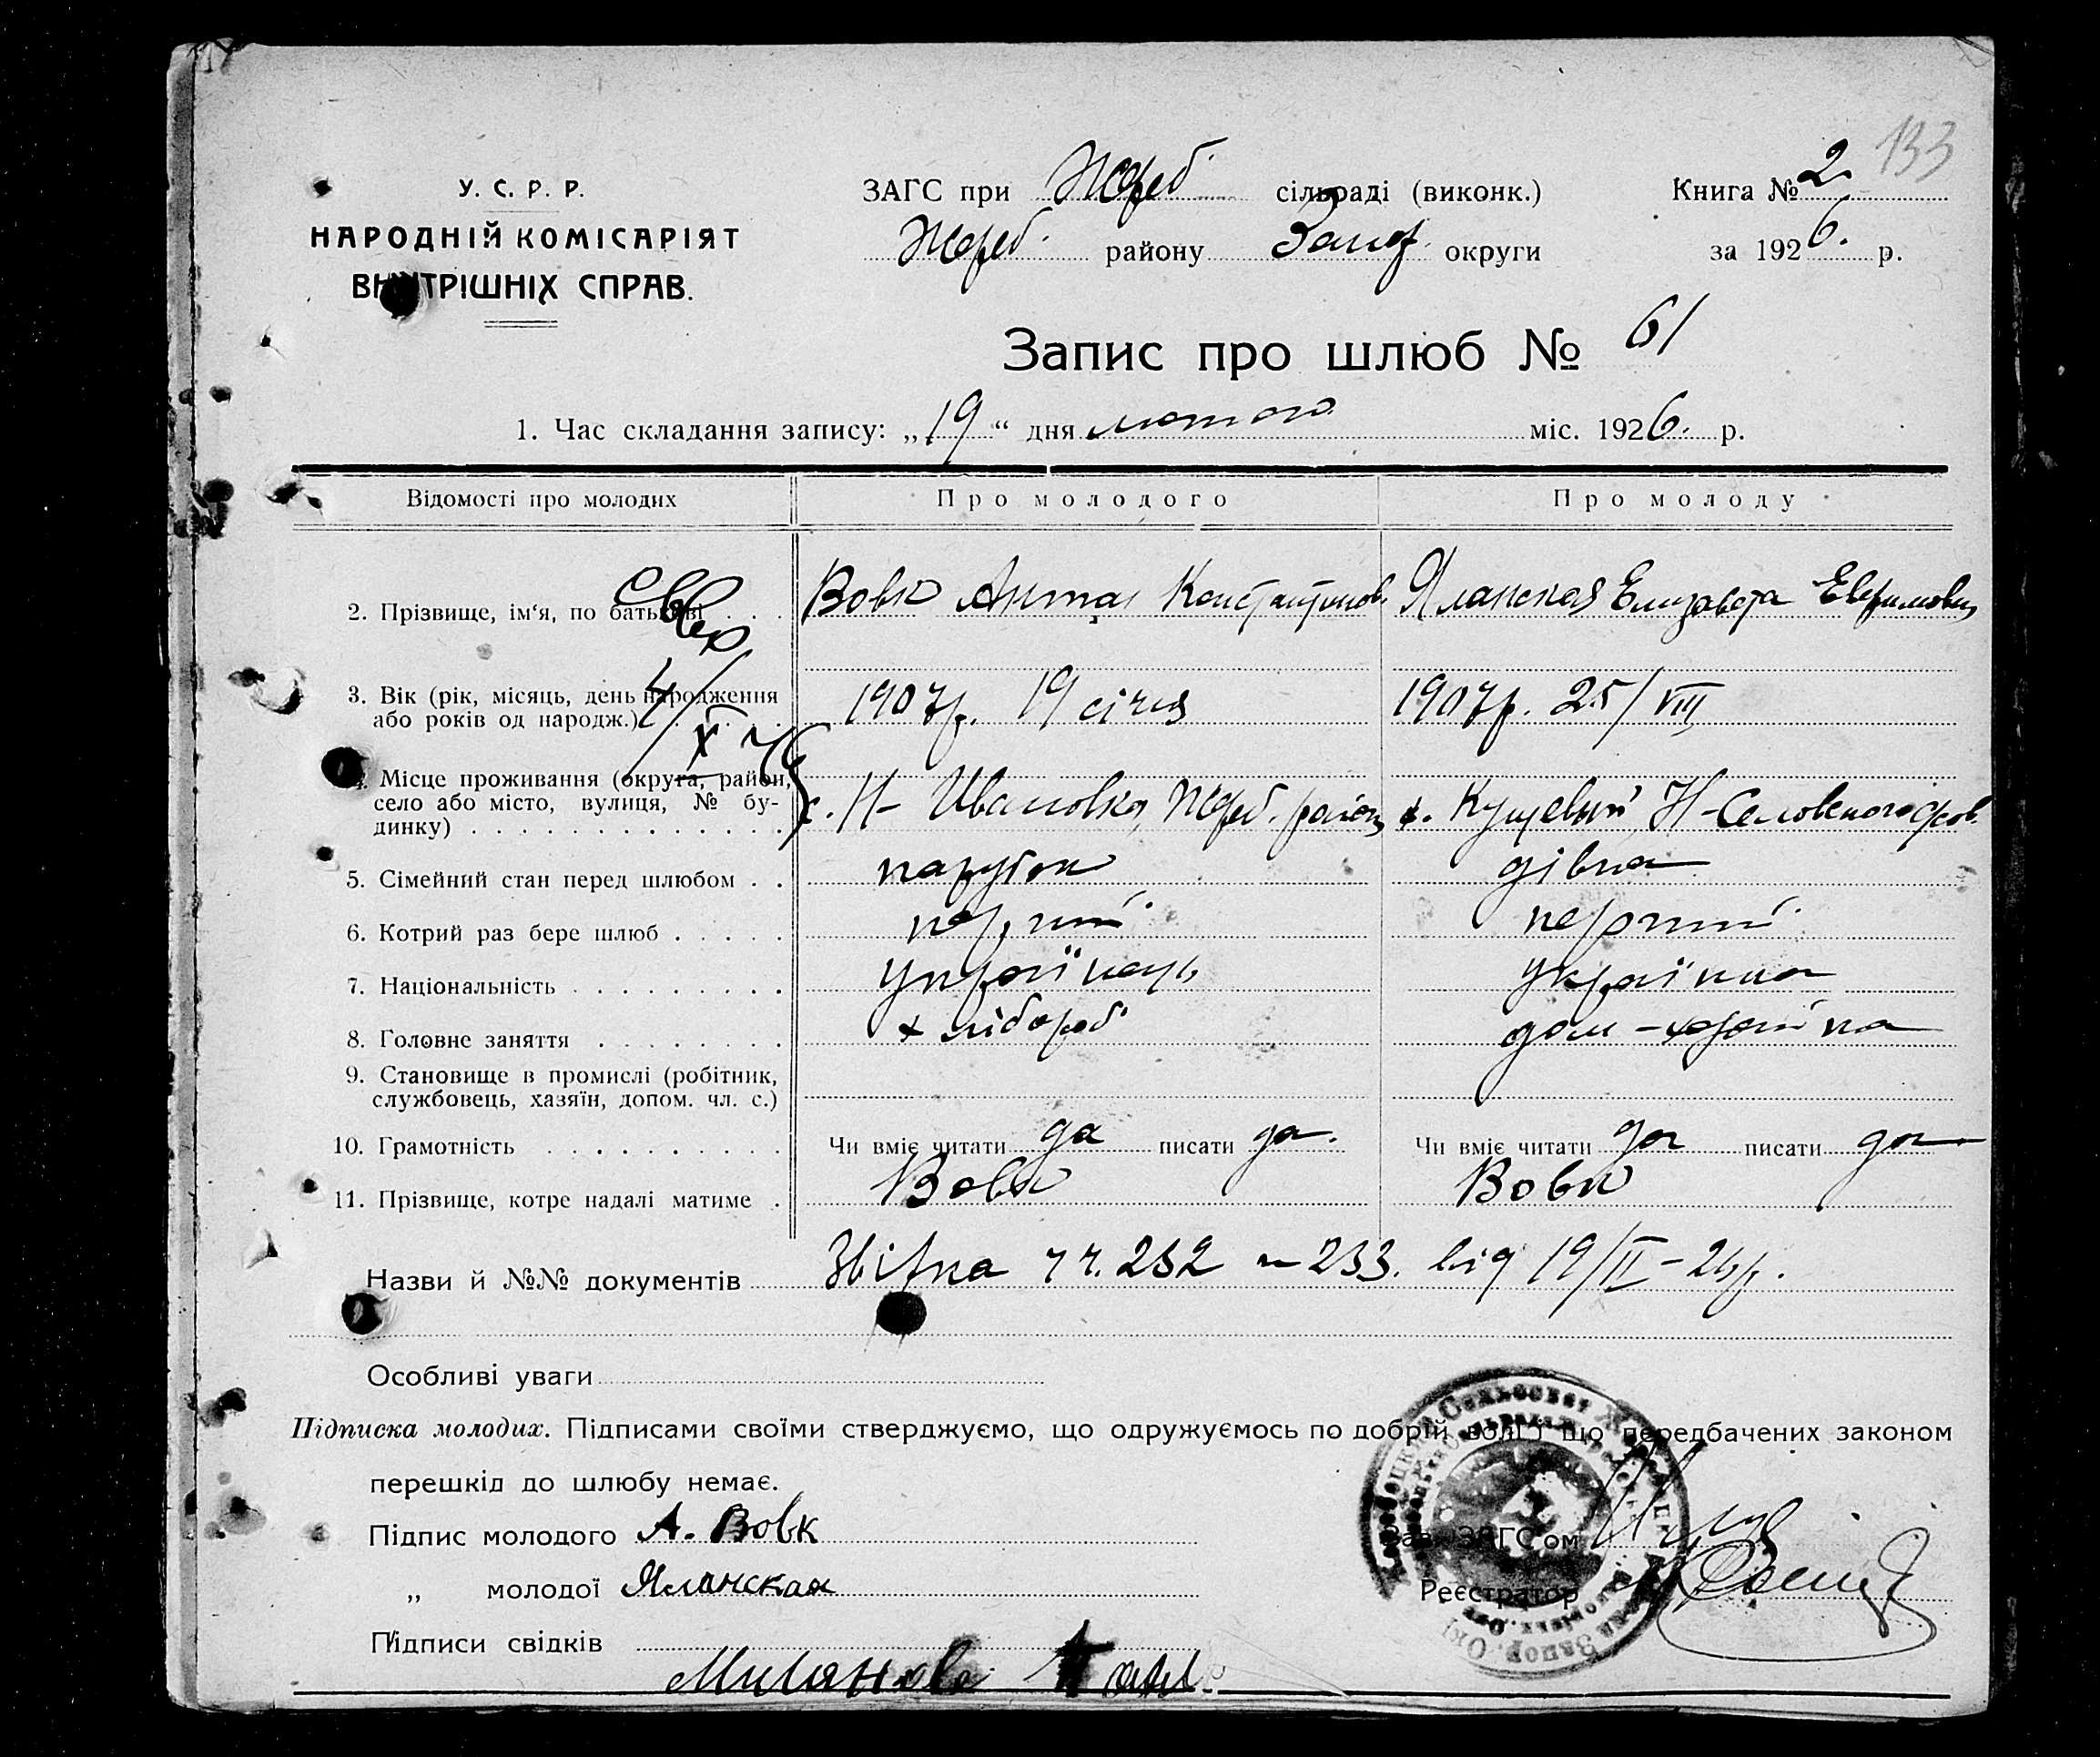 133
У. С. Р. Р.
НАРОДНІЙ КОМІСАРІЯТ
ВНУТРІШНІХ СПРАВ.
ЗАГС при Жереб. сільраді (виконк.)
Жереб. району Запор. округи
Книга № 2
за 1926. р.
Запис про шлюб № 61
1. Час складання запису: „19“ дня лютого міс. 1926. р.
Відомості про молодих Про молодого Про молоду
2. Прізвище, ім‘я, по батькові . . . Вовк Антон Константинов. Яланская Елизавета Евфимовна
3. Вік (рік, місяць, день народження
або років од народж.) 1907р. 19 січня 1907р. 25/VIII
4/X 76
4. Місце проживання (округа, район,
село або місто, вулиця, № бу-
динку) с. Н-Ивановка, Жереб. район х. Кущевый, Н-
5. Сімейний стан перед шлюбом . . парубок дівка
6. Котрий раз бере шлюб . . . . . перший перший
7. Національність . . . . . . . . . українець українка
8. Головне заняття . . . . . . . . хлібороб дом-хазяйка
9. Становище в промислі (робітник,
службовець, хазяїн, допом. чл. с.)
10. Грамотність . . . . . . . . . . Чи вміє читати да писати да. Чи вміє читати да писати да
11. Прізвище, котре надалі матиме . Вовк Вовк
Назви й №№ документів 232 233. від 19/II-26р.
Особливі уваги
Підписка молодих. Підписами своїми стверджуємо, що одружуємось по добрій волі і що передбачених законом
перешкід до шлюбу немає.
Підпис молодого А. Вовк
„ молодої Яланская
Підписи свідків
Зав. ЗАГС‘ом
Реєстратор